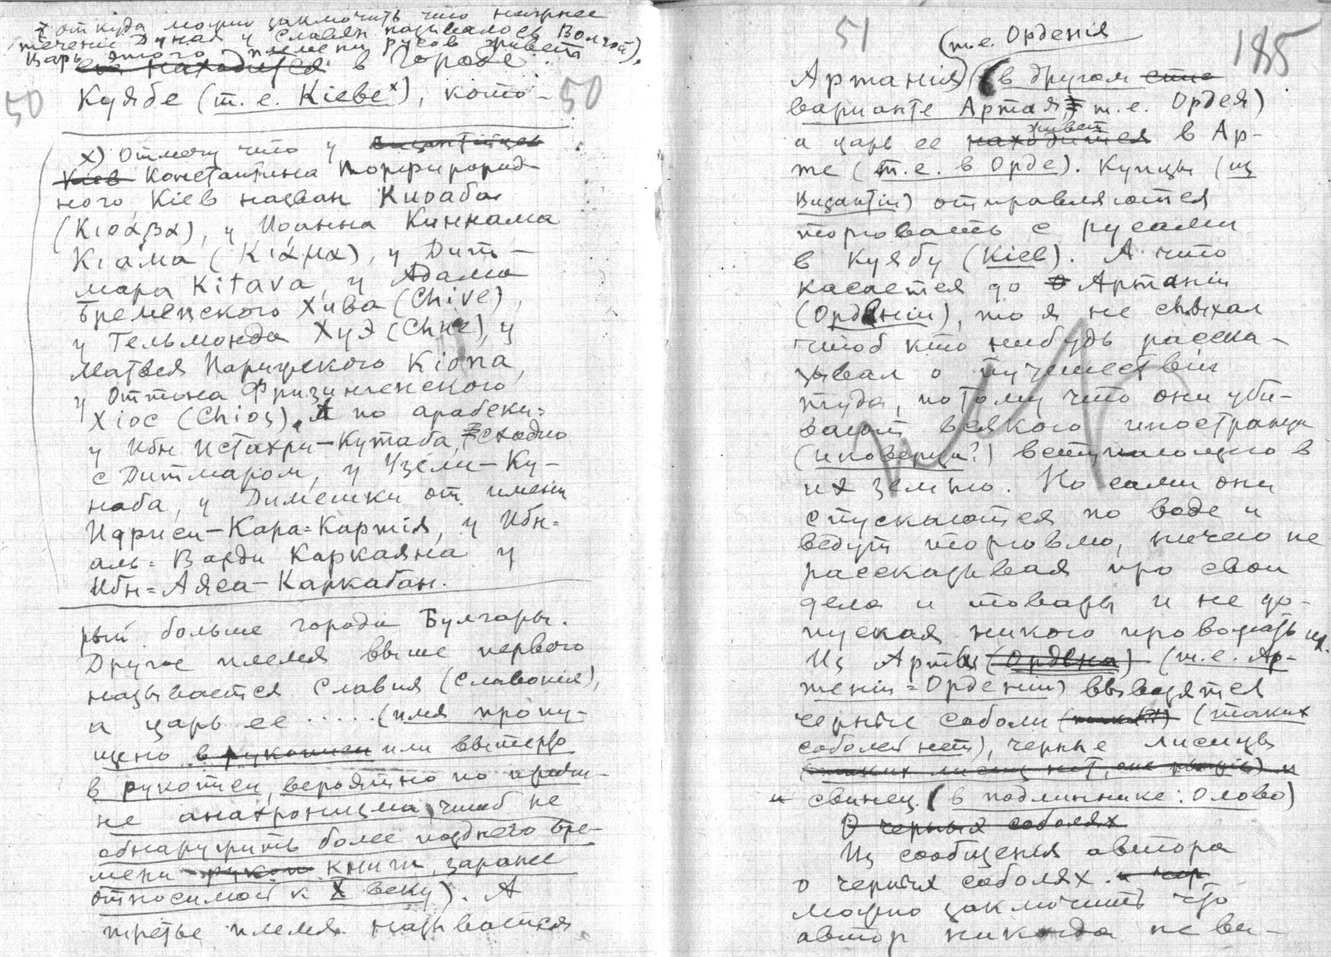 откуда можно заключить что нижнее
течение Дуная у Славян называлось Волгой).
Царь этого племени русов живет
находится в городе
50 Куябе (т. е. Кіеве х), кото- 50
х) Отмечу что у византійцев
Кіев Константина Порфирород-
ного Кіев назван Киоаба
(Κιοάβα), у Иоанна Киннама
Кіама (Κιάμα), у Дит-
мара Kitava, у Адама
Бременского Хива (Chive),
у Гельмонда Хуэ (Chue), у
Матвея Парижского Kiona,
у Оттона Фризингенского
Хіос (Chios), А по арабски:
у Ибн Истахри-Кутаба, сходно
с Дитмаром, у Узели-Ку-
наба, у Димешки от имени
Идриси-Кара=Кармія, у Ибн=
аль=Варди Каркаяна у
Ибн=Аяса-Каркабан.
рый больше города Булгары.
Другое племя выше первого
называется Славия (Славонія),
а царь ее ..... (имя пропу-
щено в рукописи или вытерто
в рукописи, вероятно по причи-
не анахронизма, чтоб не
обнаружить более позднего вре-
мени книги, заранее
относимой к X веку). А
третье племя называется
51
185
(т. е. Орденія
Артанія) (в другом
варианте Артая, т. е. Ордея)
а царь ее находится живет в Ар-
же (т. е. в Орде). Купцы (из
Византіи) отправляются
торговать с русами
в Куябу (Кіев). А что
касается до Артаніи
(Орденіи), то я не слыхал
чтоб кто нибудь расска-
зывал о путешествіи
туда, потому что они уби-
вают всякого иностранца
(иноверца?) вступающего в
их землю. Но сами они
спускаются по воде и
ведут торговлю, ничего не
рассказывая про свои
дела и товары и не до-
пуская никого провожать их.
Из Арты (Ордена) (т. е. Ар-
женіи = Орденіи) вывозятся
черные соболи (таких
соболей нет), черные лисицы
и свинец (в подлиннике: олово)
О черных соболях
Из сообщения автора
о черных соболях
можно заключить что
автор никогда не ви-